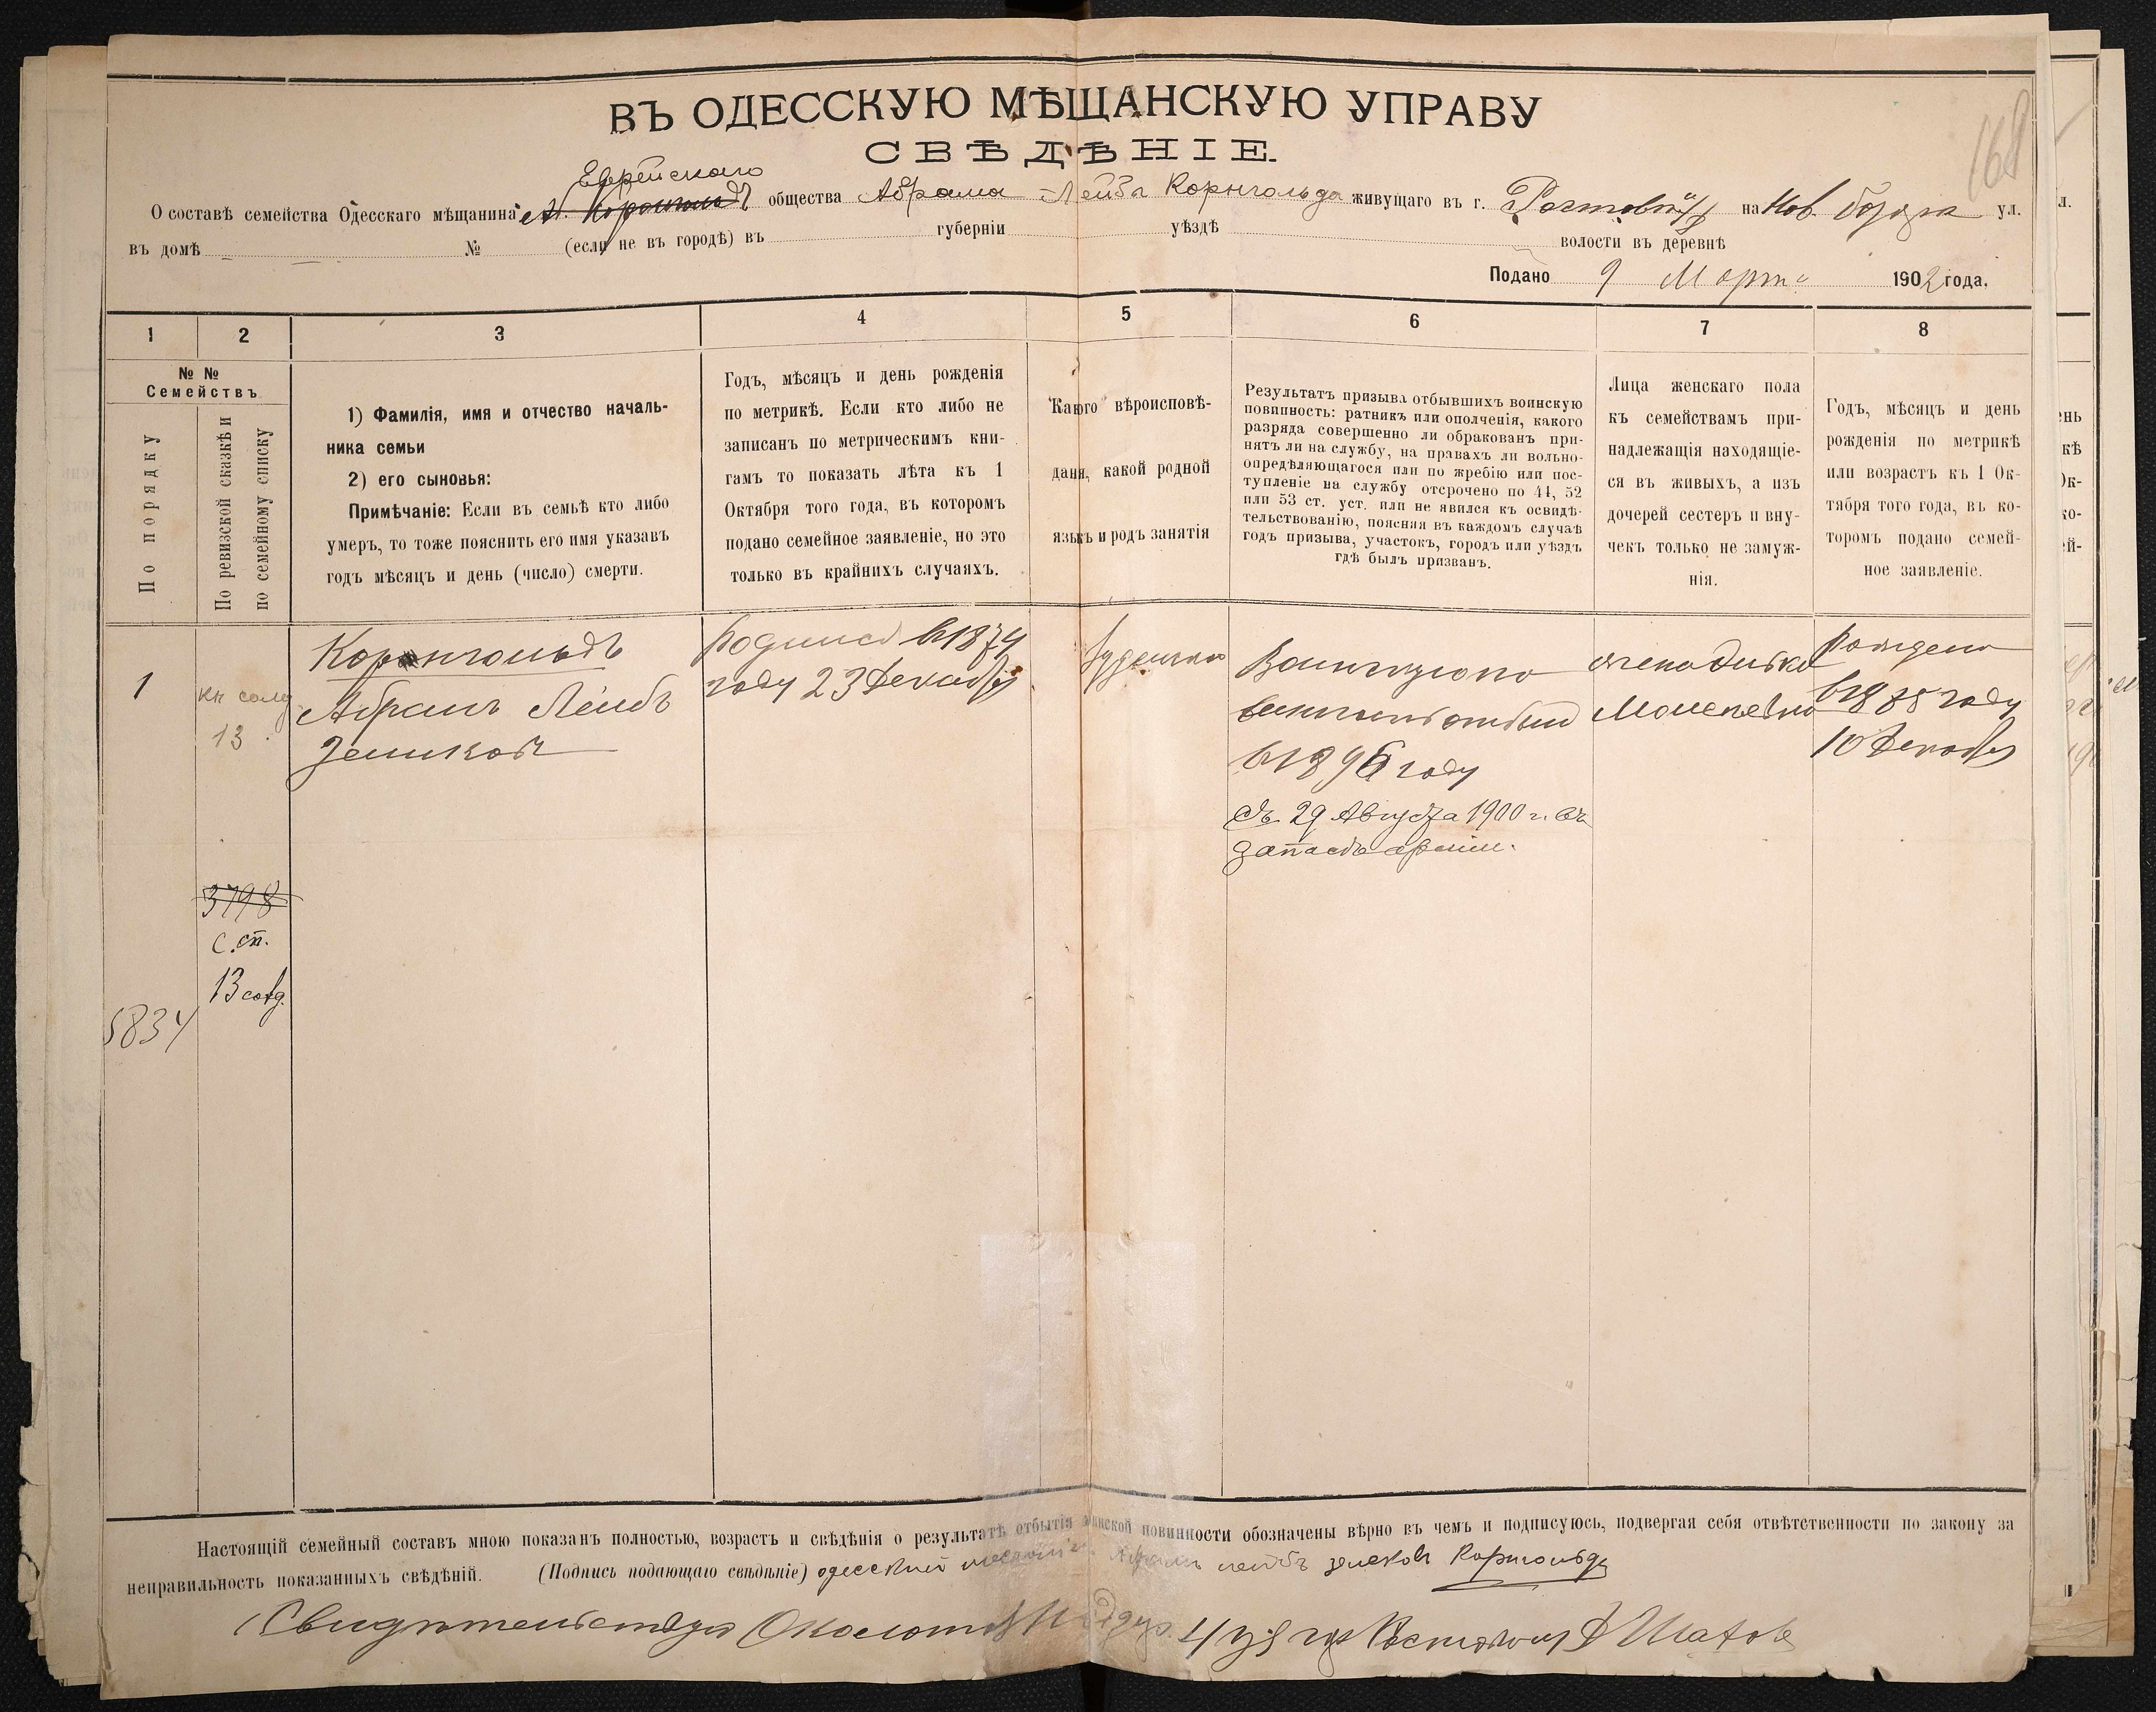 168
ВЪ ОДЕССКУЮ МѢЩАНСКУЮ УПРАВУ
СВѢДѢНІЕ.
Еврейскаго
О составѣ семейства Одесскаго мѣщанина общества Абрама-Лейба Корнгольда живущаго въ г. на Нов. ул.
въ домѣ № (если не въ городѣ) въ губерніи уѣздѣ волости въ деревнѣ
Подано 9 Марта 1902 года.
1 2 3 4 5 6 7 8
№ №
Семействъ
По порядку
По ревизской сказкѣ и
по семейному списку
1) Фамилія, имя и отчество началь-
ника семьи
2) его сыновья:
Примѣчаніе: Если въ семьѣ кто либо
умеръ, то тоже пояснить его имя указавъ
годъ мѣсяцъ и день (число) смерти.
Годъ, мѣсяцъ и день рожденія
по метрикѣ. Если кто либо не
записанъ по метрическимъ кни-
гамъ то показать лѣта къ 1
Октября того года, въ которомъ
подано семейное заявленіе, но это
только въ крайнихъ случаяхъ.
Какого вѣроисповѣ-
данія, какой родной
языкъ и родъ занятія
Результатъ призыва отбывшихъ воинскую
повинность: ратникъ или ополченія, какого
разряда совершенно ли обракованъ при-
нятъ ли на службу, на правахъ ли вольно-
опредѣляющагося или по жребію или пос-
тупленіе на службу отсрочено по 44, 52
или 53 ст. уст. или не явился къ освидѣ-
тельствованію, поясняя въ каждомъ случаѣ
годъ призыва, участокъ, городъ или уѣздъ
гдѣ былъ призванъ.
Лица женскаго пола
къ семействамъ при-
надлежащія находящіе-
ся въ живыхъ, а изъ
дочерей сестеръ и вну-
чекъ только не замуж-
нія.
Годъ, мѣсяцъ и день
рожденія по метрикѣ
или возрастъ къ 1 Ок-
тября того года, въ ко-
торомъ подано семей-
ное заявленіе.
1
кн солд
13
3798
с. сп.
13 солд.
5834
Корнгольдъ
Абрамъ Лейбъ
Зеликовъ
Родился въ 1874
году 23 Декабря
Іудейско
въ 1896 году
съ 29 Августа 1900 г. въ
запасѣ арміи.
жена
въ 1888 году
10 Декабря
Настоящій семейный составъ мною показанъ полностью, возрастъ и свѣдѣнія о результатѣ отбытія воинской повинности обозначены вѣрно въ чемъ и подписуюсь, подвергая себя отвѣтственности по закону за
неправильность показанныхъ свѣдѣній. (Подпись подающаго свѣдѣніе) одесский мещанин Абрам лейбъ зелеков Корнгольд
Свидѣтельствую